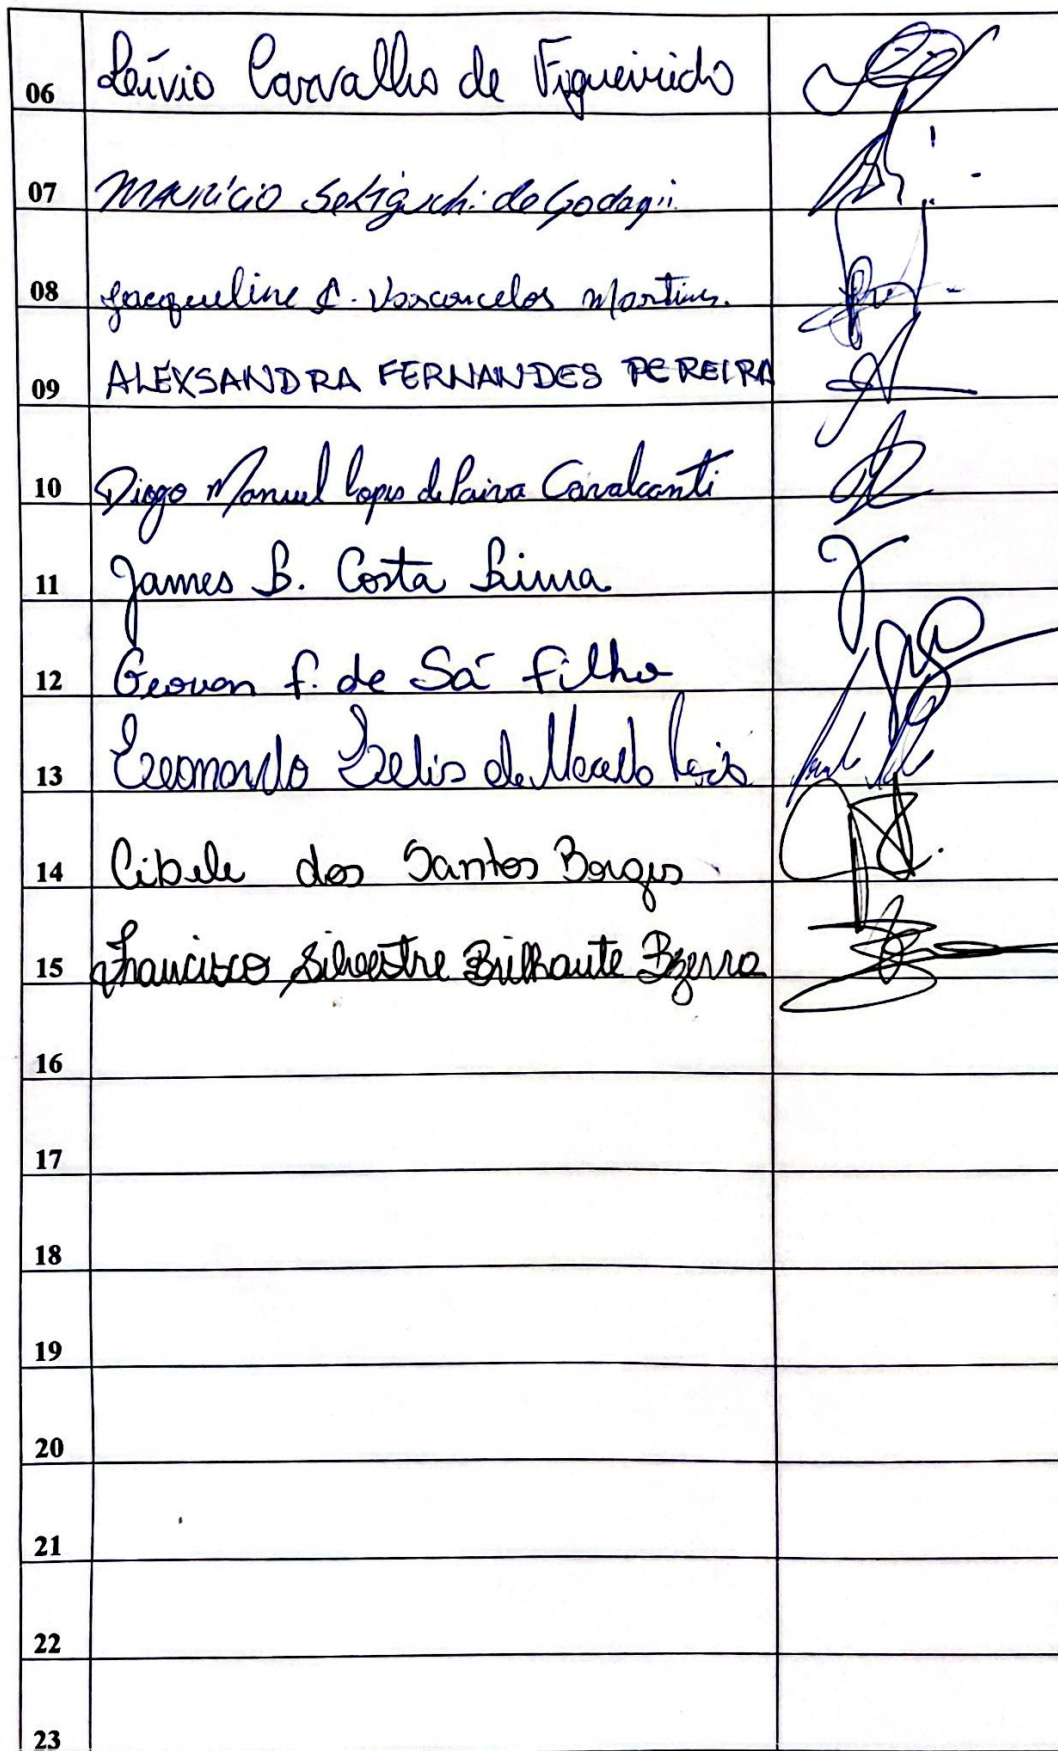 06 Lívio Carvalho de Figueirido
07 Maurício Sekiguchi de Godoy
08 Jacqueline C. Vasconcelos Martins.
09 ALEXSANDRA FERNANDES PEREIRA
10 Diogo Manuel Lopes de Paiva Cavalcanti
11 James B. Costa Lima
12 Geovan f. de Sá filho
13 Leonardo Lelis de Macedo
14 Cibele dos Santos Borges
15 Francisco Silvestre Brilhante Bezerra
16
17
18
19
20
21
22
23